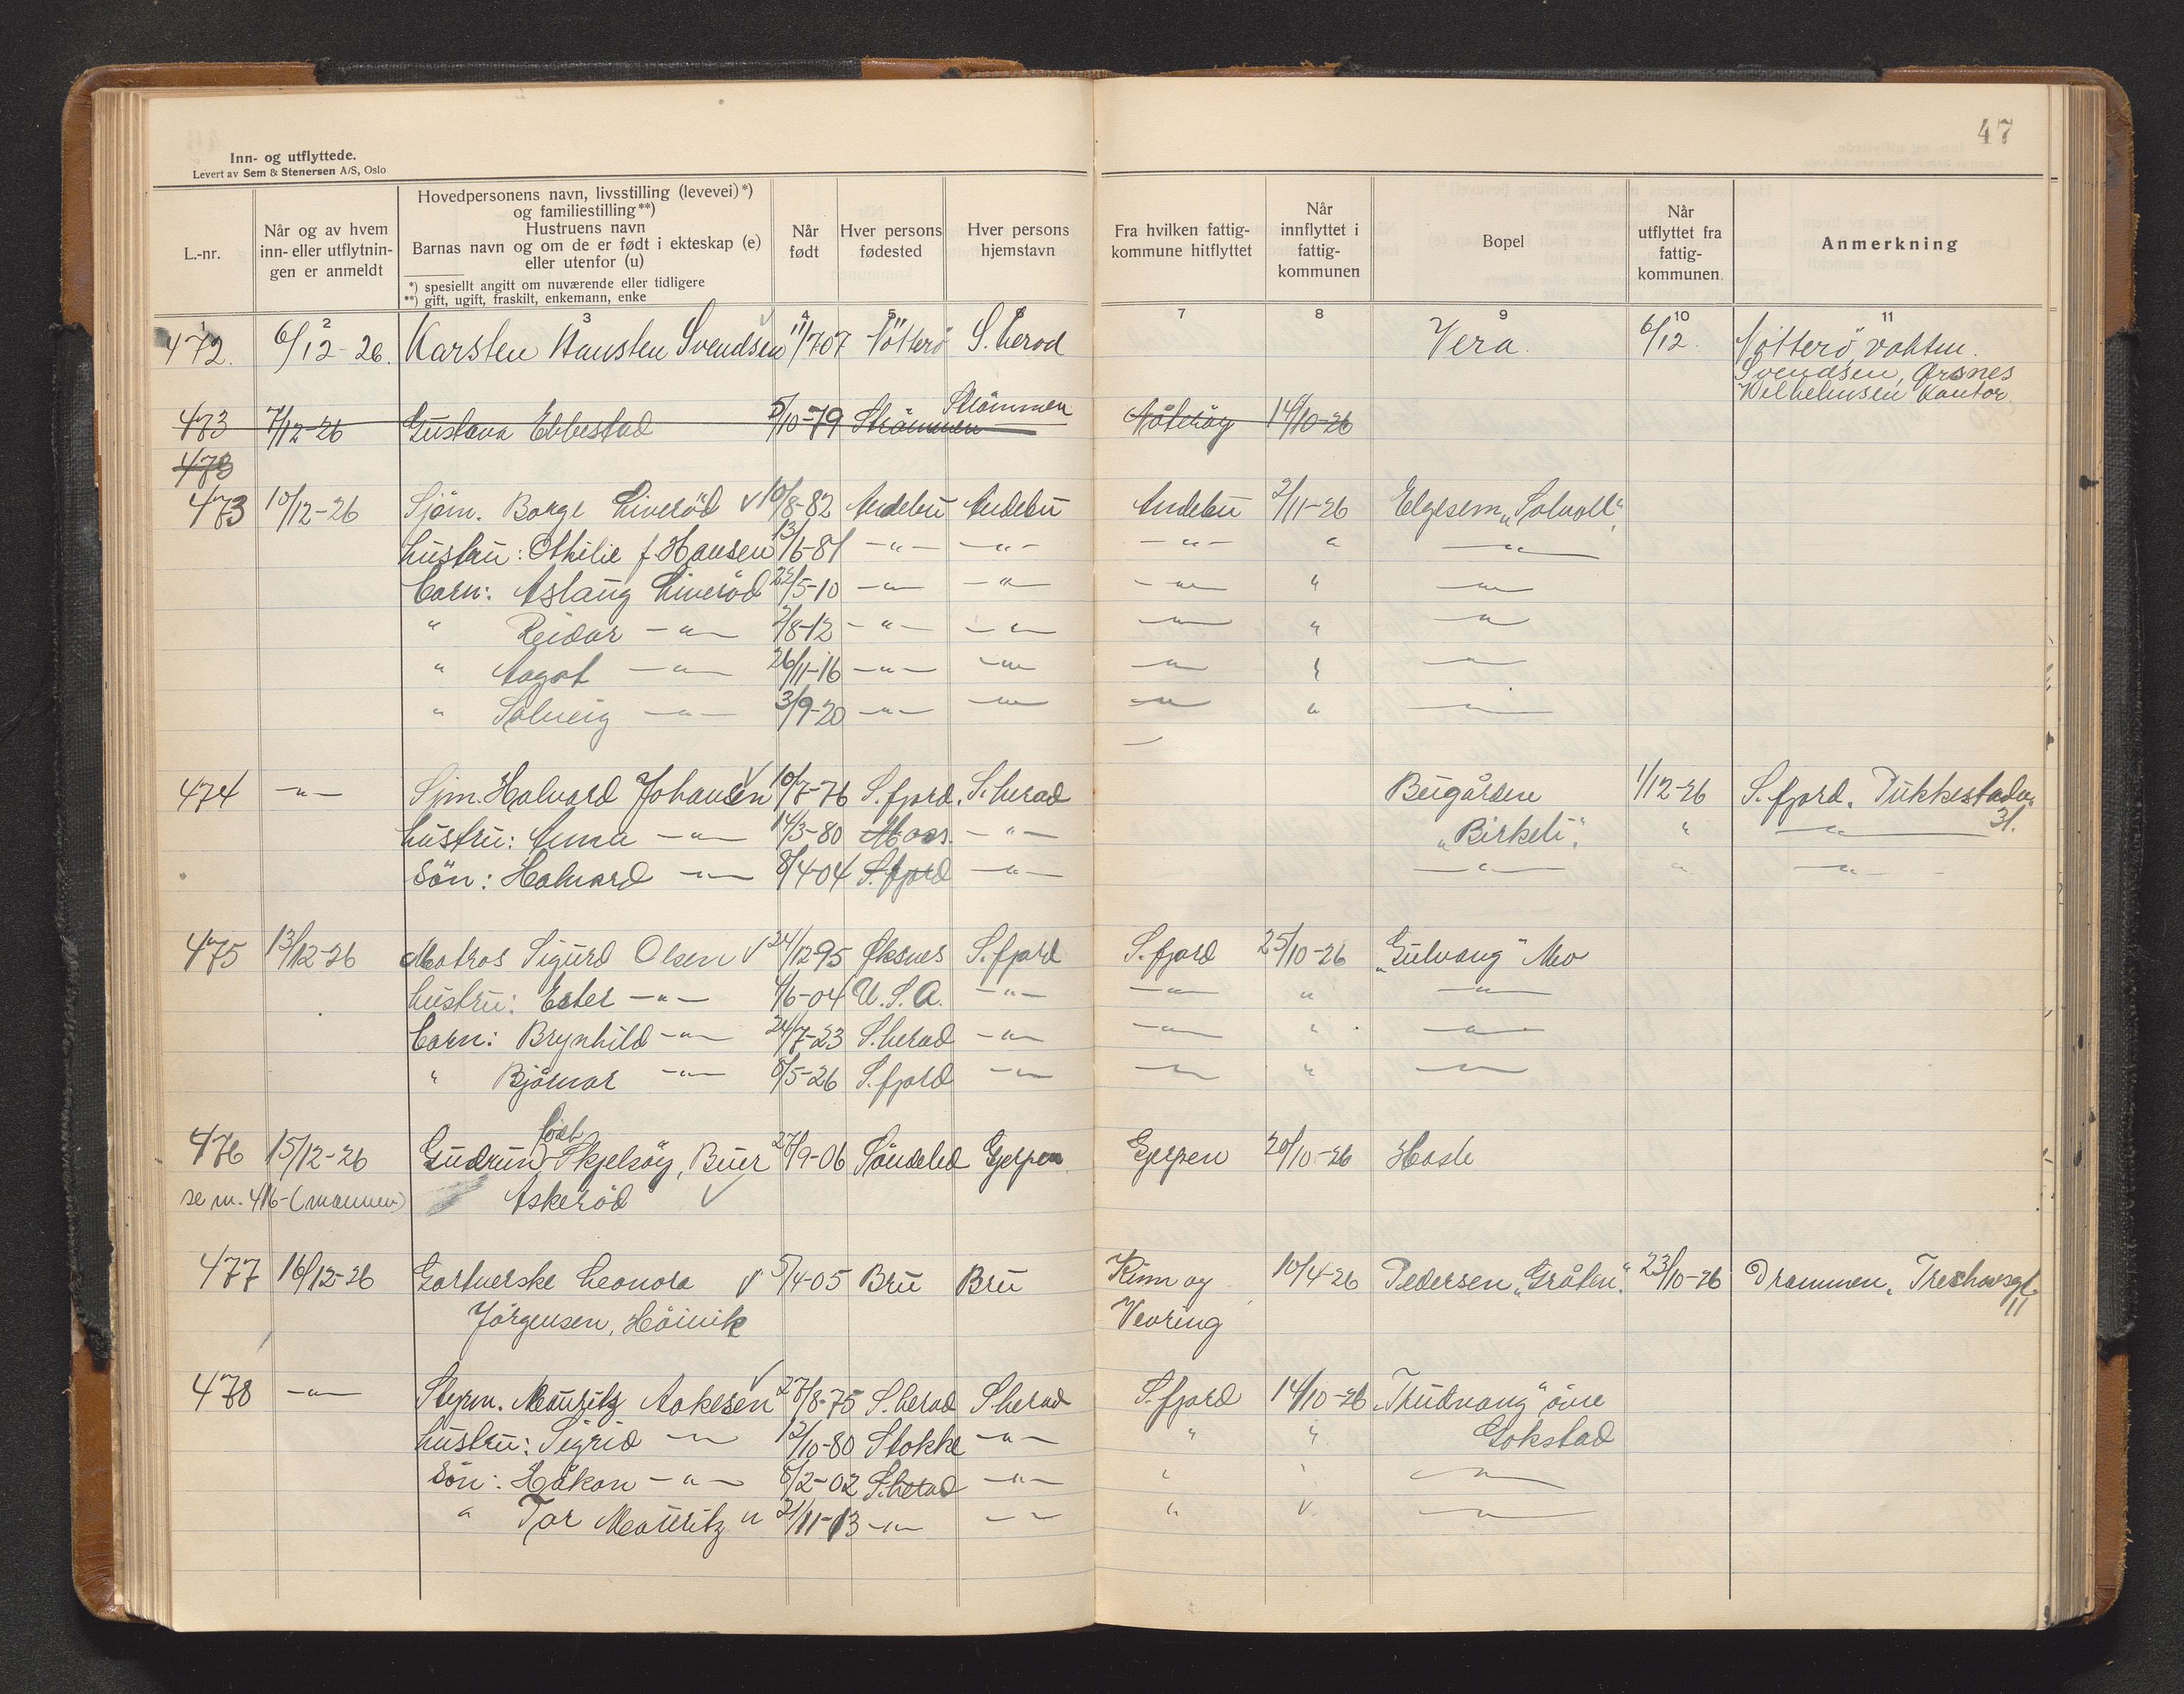 47
Inn- og utflyttede.
Levert av Sem & Stenersen A/S, Oslo
L.-nr.
Når og av hvem inn- eller utflytningen er anmeldt
Hovedpersonens navn, livsstilling (levevei)*)
og familiestilling**)
Hustruens navn
Barnas navn og om de er født i ekteskap (e)
eller utenfor (u)
*) spesiellt angitt om nuværende eller tidligere
**) gift, ugift, fraskilt, enkemann, enke
Når født
Hver persons fødested
Hver persons hjemstavn
Fra hvilken fattigkommune hitflyttet
Når innflyttet i fattigkommunen
Bopel
Når utflyttet fra fattigkommunen
Anmerkning
1 2 3 4 5 6 7 8 9 10 11
472. 6/12-26. Karsten Hansten Svendsen 11/7 07 Nötterö S. herad Vera. 6/12. Nötterö, vakten.
Svendsen, Ørsnes
Wilhelmsen Kontor.
Strömmen
473 7/12-26 Gustava Ebbestad 5/10-79 Strömmen Nöteröy 14/10-26
473
473 10/12-26 Sjöm. Borge Liveröd √ 10/8-82 Andebu Andebu Andebu 2/11-26 Elgesem „Solvoll“
hustru: Othilie f. Hansen 13/6-81 -"- -"- -"- " -"-
barn: Aslaug Liveröd 22/5-10 -"- -"- -"- " -"-
" Reidar -"- 2/8-12 -"- -"- -"- " -"-
" Aagot -"- 26/11-16 -"- -"- -"- " -"-
" Solveig -"- 3/9-20 -"- -"- -"- " -"-
474 -"- Sjm. Halvard Johansen √ 10/7-76 S. fjord. S. herad Bugården 1/12-26 S. fjord. Pukkestadv.
31.
hustru: Anna -"- 14/3-80 Moss. -"- „Birkeli“. " -"-
Sön: Halvard -"- 8/4-04 S. fjord -"- -"- " -"-
475 13/12-26 Matros Sigurd Olsen √ 24/12 95 Øksnes S. fjord S. fjord 25/10-26 „Gulvang“ Mo
hustru: Ester -"- 4/6-04 U. S. A. -"- -"- " -"-
barn: Brynhild -"- 24/7-23 S. herad -"- -"- " -"-
" Björnar -"- 8/5-26 S. fjord -"- -"- " -"-
född
476 15/12-26 Gudrun Skjelsöy, Buer 27/9-06 Söndeled Gjerpen Gjerpen 20/10-26 Hasle
se nr. 416-(mannen) Askeröd √
477 16/12-26 Gartnerske Leonora √ 5/4-05 Bru Bru Kinn og 10/4-26 Pedersen „Gråtun“. 23/10-26 Drammen. Treschowsgt.
11
Jörgensen, Höivik Vevring
478 -"- Styrm. Mauritz Aakesen √ 27/8-75 S. herad S herad S. fjord 14/10-26 „Thudvang“ övre
hustru: Sigrid -"- 12/10-80 Stokke -"- " " Gokstad
Sön: Håkon -"- 8/2-02 S. herad -"- " " -"-
" Tor Mauritz " 21/11-13 -"- -"- " " -"-